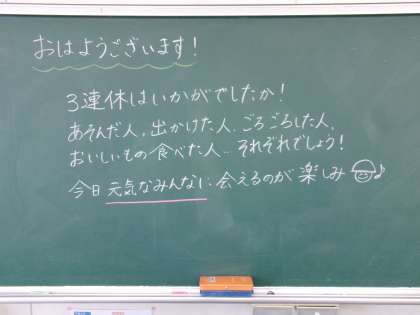 おはようございます!
3連休はいかがでしたか!
あそんだ人、出かけた人、ごろごろした人、
おいしいもの食べた人…それぞれでしょう!
今日元気なみんなに会えるのが楽しみ♪